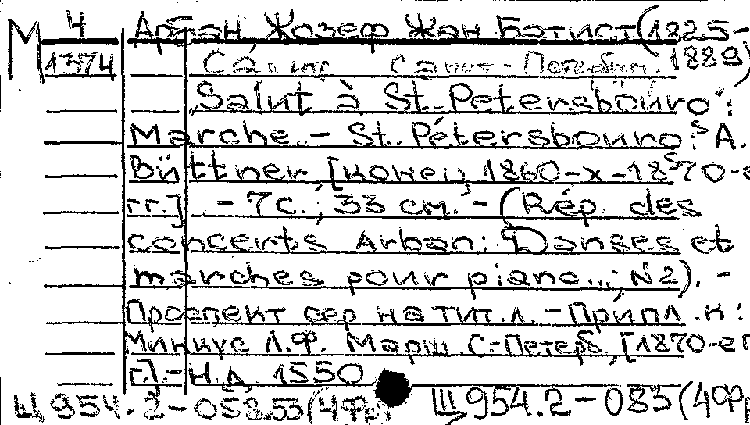 М 4 Арбан, Жозеф Жан Батист (1825-
1374 Санкт-Петербург. 1889)
"Salut à St. Petersbouro":
Marche. - St. Pétersbouro: A.
Büttner, [конец 1860-х-1870-е
гг.]. - 7с.; 33 см. - (Rép. des
concerts Arban: Danses et
marches pour piano...; N2). -
Проспект сер на тит.л. - Припл. к:
Минкус Л.Ф. Марш С-Петерб, [1870-е г
г.]. - Н.д. 1550
Щ 954.2-052.55 (4Фр) Щ 954.2-083 (4Фр